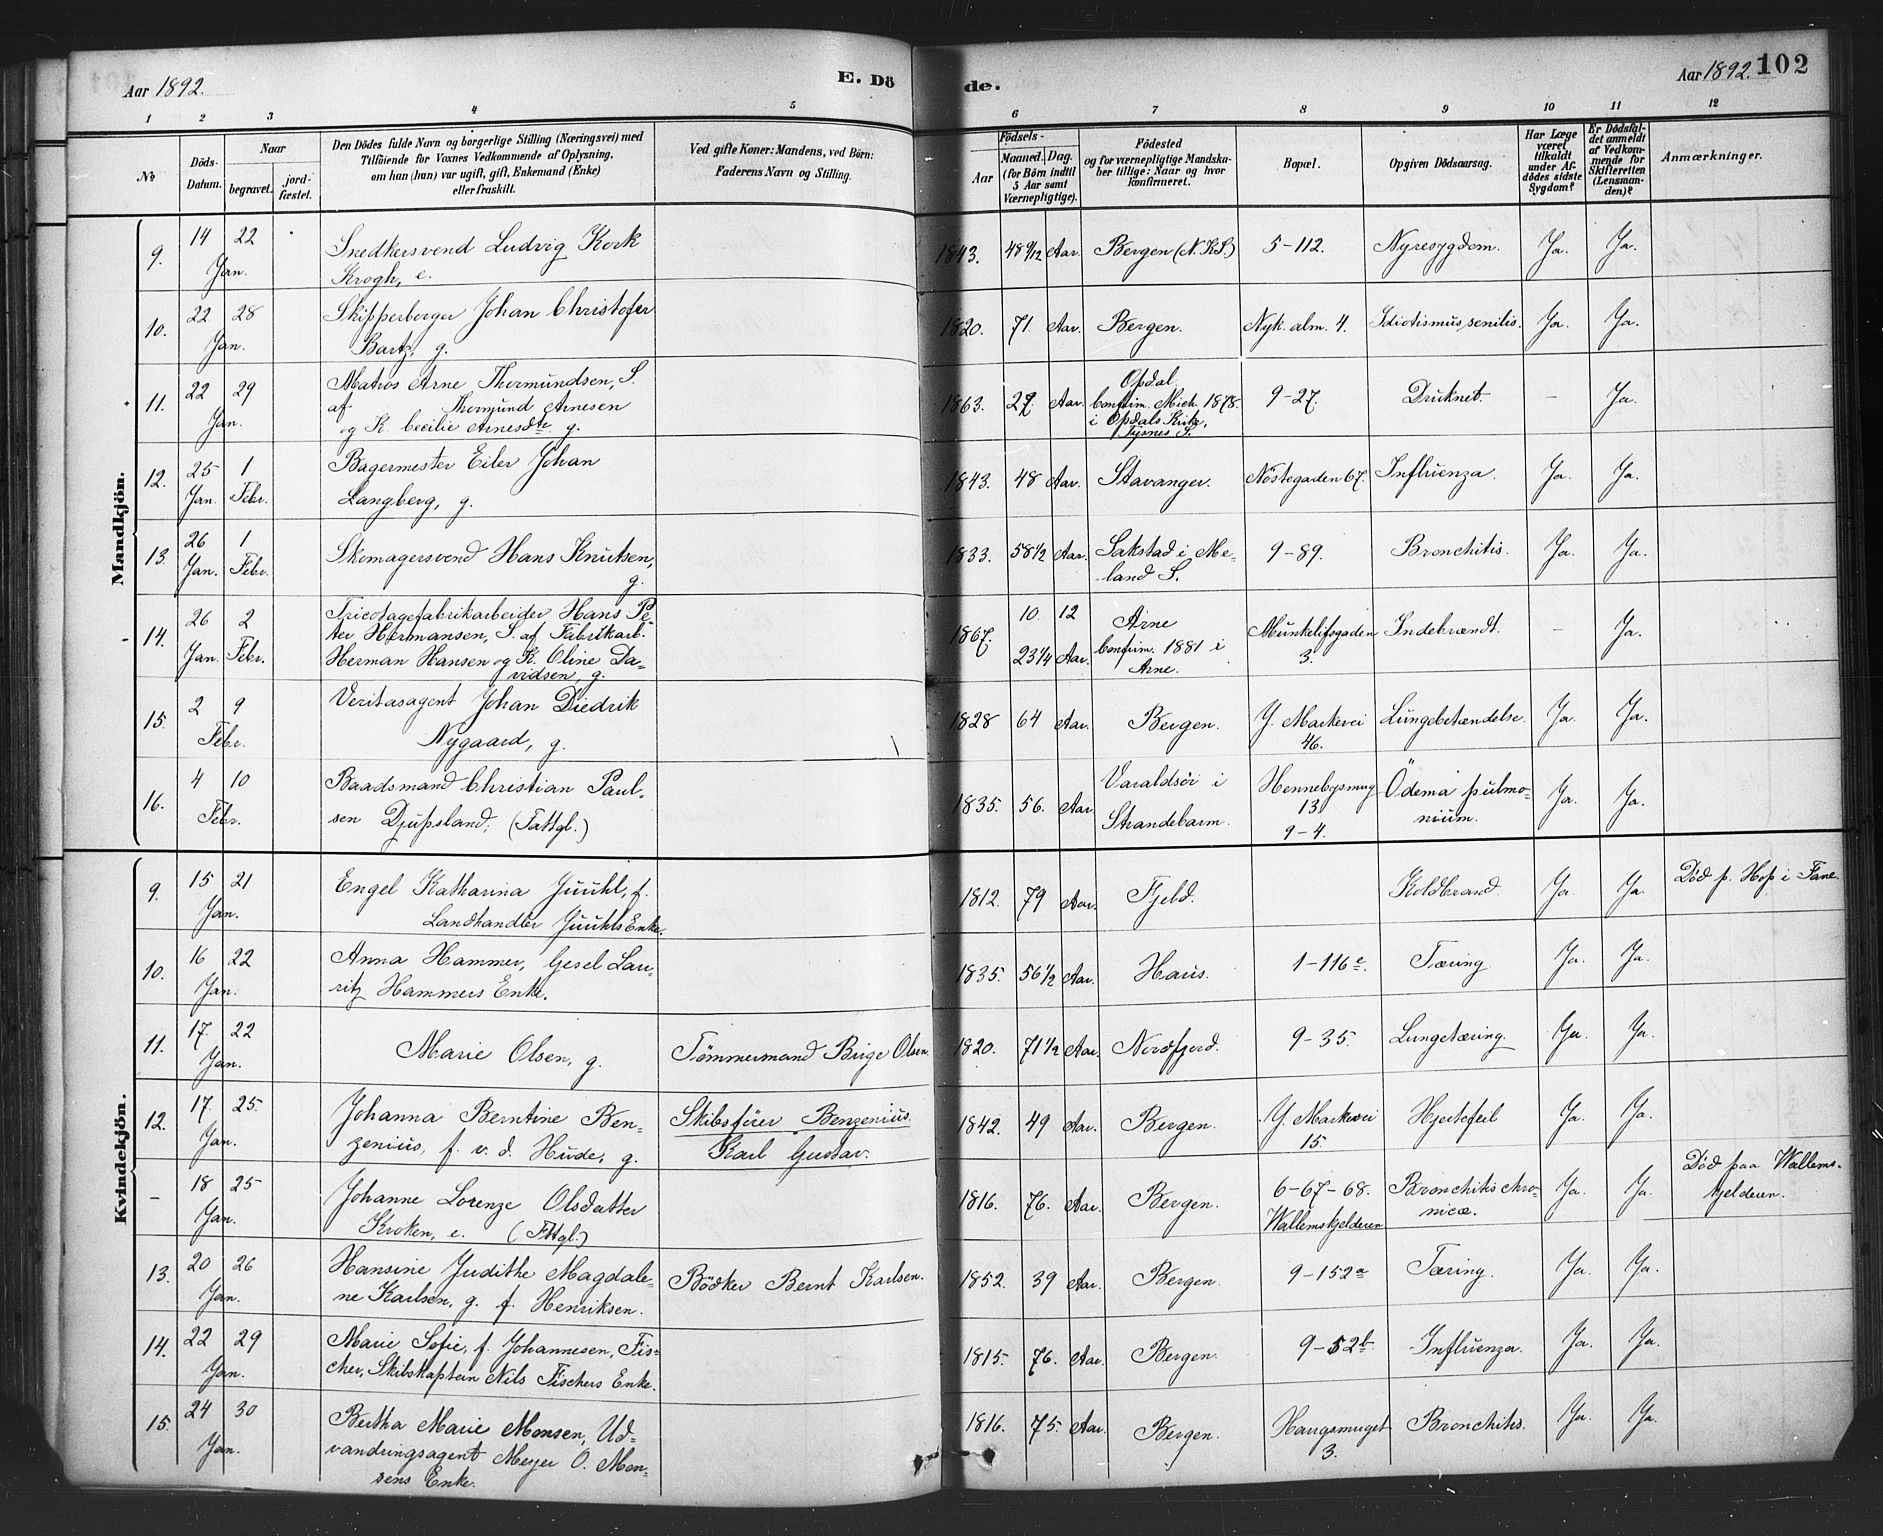 Aar 1892.
E. Dö
de.
Aar 1892. 102
1 2 3 4 5 6 7 8 9 10 11 12
No
Döds-
Datum.
Naar
begravet.
jord-
fæstet.
Den Dödes fulde Navn og borgerlige Stilling (Næringsvei) med
Tilföiende for Voxnes Vedkommende af Oplysning,
om han (hun) var ugift, gift, Enkemand (Enke)
eller fraskilt.
Ved gifte Koner: Mandens, ved Börn:
Faderens Navn og Stilling.
Födsels-
Aar
Maaned. Dag.
(for Börn indtil
5 Aar samt
Værnepligtige).
Födested
og for værnepligtige Mandska-
ber tillige: Naar og hvor
konfirmeret.
Bopæl.
Opgiven Dödsaarsag.
Har Læge
været
tilkaldt
under Af-
dödes sidste
Sygdom?
Er Dödsfal-
det anmeldt
af Vedkom-
mende for
Skifteretten
(Lensman-
den)?
Anmærkninger.
Mandkjön.
9. 14 22 Snedkersvend Ludvig Kork 1843. 48 9/12 Aar. Bergen (N.K.S.) 5-112. Nyresygdom. Ja. Ja.
Jan. Krogh, e.
10. 22 28 Skipperborger Johan Christofer 1820. 71. Aar. Bergen. Nyk. alm. 4. Idiotismus senilis. Ja. Ja.
Jan. Bartz, g.
11. 22 29 Matros Arne Thormundsen, S. Opdal,
af Thormund Arnesen 1863. 27. Aar. Confirm. Mich. 1878. 9-27. Druknet. - Ja.
Jan. og K. Cecilie Arnesdtr g. i Opdals Kirke,
Tysnes S.
12. 25 1 Bagermester Eiler Johan 1843. 48 Aar. Stavanger. Nöstegaden 67. Influenza. Ja. Ja.
Jan. Febr. Langberg, g.
13. 26 1 Skomagersvend Hans Knutsen, 1833. 58 1/2 Aar. Sakstad i Me- 9-89. Bronchitis. Ja. Ja.
Jan. Febr. g. land S.
14. 26 2 Tricotagefabrikarbeider Hans Pe- 10. 12
ter Hermansen, S. af Fabrikarb. 1867. Arne Munkelifsgaden Indebrændt. - Ja.
Jan. Febr. Herman Hansen og K. Oline Da- 23 1/4 Aar. Confirm. 1881 i 3.
vidsen, g. Arne.
15. 2 9 Veritasagent Johan Diedrik 1828 64 Aar. Bergen. Y. Markevei Lungebetændelse. Ja. Ja.
Febr. Nygaard, g. 46.
16. 4 10 Baadsmand Christian Paul- 1835. 56. Aar Varaldsöi i Hennebysmug Ödema pulmo- Ja. Ja.
Febr. sen Djupsland, (Fattgl.) Strandebarm. 13 nium.
9-4.
Kvindekjön.
9. 15 21 Engel Katharina Juuhl, f. 1812. 79 Aar. Fjeld. Koldbrand Ja. Ja. Död p. Hop i Fane.
Jan. Landhandler Juuhls Enke.
10. 16 22 Anna Hammer, Gesel Lau- 1835. 56 1/2 Aar. Haus. 1-116 e. Tæring Ja. Ja.
Jan. ritz Hammers Enke.
11. 17. 22 Marie Olsen, g. Tömmermand Brige Olsen. 1820. 71 1/2 Aar. Nordfjord. 9-35. Lungetæring. Ja. Ja.
Jan.
12. 17. 25. Johanna Berntine Ben- Skibsförer Benzenius. 1842. 49 Aar. Bergen. Y. Markevei Hjertefeil Ja. Ja.
Jan. zenius, f. v. d. Hude, g. Karl Gustav. 15.
- 18 25 Johanne Lorenze Olsdatter 1816. 76. Aar. Bergen. 6-67-68. Bronchitis chro- Ja. Ja. Död paa Wallems-
Jan. Kroken, e. (Fttgl.) Wallemskjelderen nicæ. kjelderen.
13. 20 26 Hansine Judithe Magdale- Bödker Bernt Karlsen. 1852. 39 Aar. Bergen. 9-152 a Tæring. Ja. Ja.
Jan. ne Karlsen, g. f. Henriksen.
14. 22 29 Marie Sofie, f. Johannesen, Fis- 1815. 76. Aar. Bergen. 9-52 b. Influenza. Ja. Ja.
Jan. cher, Skibskaptein Nils Fischers Enke.
15. 24 30 Bertha Marie Monsen, Ud- 1816. 75. Aar. Bergen. Haugsmuget Bronchitis. Ja. Ja.
Jan. vandringsagent Meyer O. Mon- 3.
sens Enke.